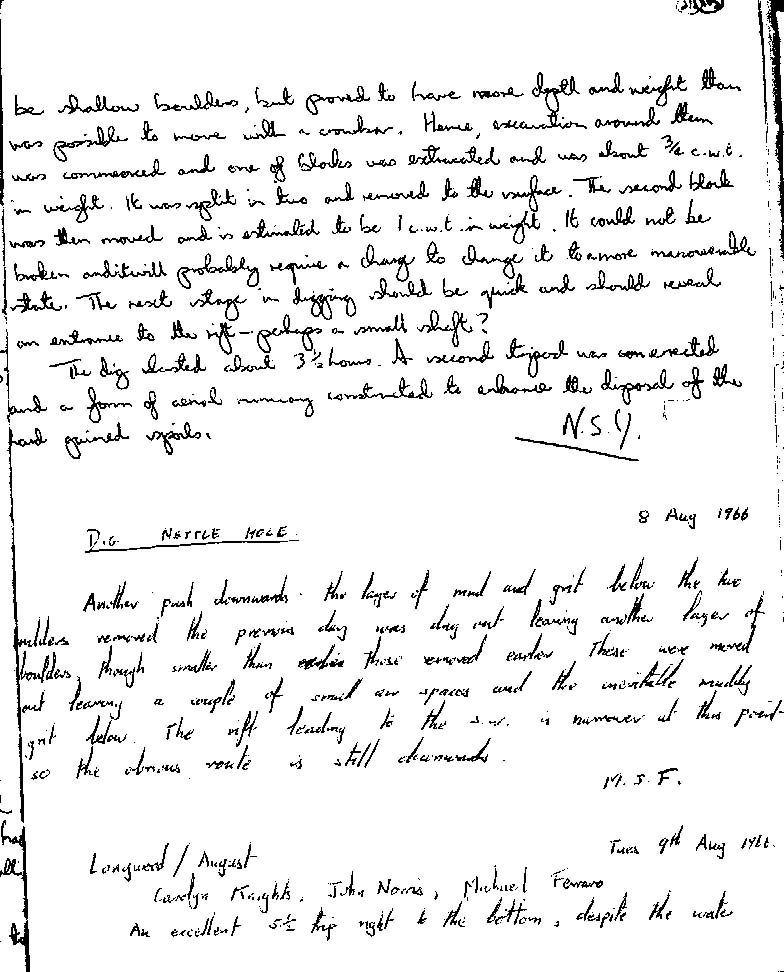 be shallow boulders, but proved to have more depth and weight than
was possible to move with a crowbar. Hence, excavation around them
was commenced and one of blocks was extracted and was about 3/4 c.w.t.
in weight. It was split in two and removed to the surface. The second block
was then moved and is estimated to be 1 c.w.t. in weight. It could not be
broken and it will probably require a charge to change it to a more manoeuvrable
state. The next stage in digging should be quick and should reveal
an entrance to the rift - perhaps a small shaft?
The dig lasted about 3 1/2 hours. A second tripod was erected
and a form of aerial runway constructed to enhance the disposal of the
hard gained spoils.
N.S.Y.
8 Aug 1966
DIG NETTLE HOLE.
Another push downwards. The layer of mud and grit below the two
boulders removed the previous day was dug out leaving another layer of
boulders, though smaller than those removed earlier. These were moved
out leaving a couple of small air spaces and the inevitable muddy
grit below. The rift leading to the s.w. is narrower at this point
so the obvious route is still downwards.
M.S.F.
Tues 9th Aug 1966.
Longwood / August
Carolyn Knights, John Norris, Michael Ferraro
An excellent 5 1/2 trip right to the bottom, despite the water